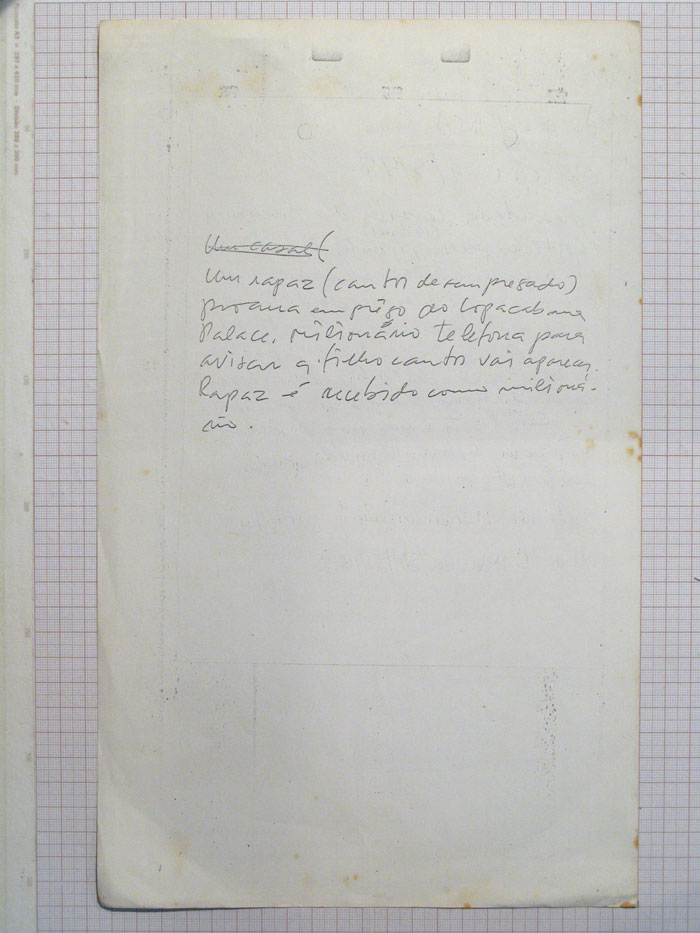 Um casal (
Um rapaz (cantor desempregado)
procura emprêgo no Copacabana
Palace. Milionário telefona para
avisar q. filho cantor vai aparecer.
Rapaz é recebido como milioná-
rio.